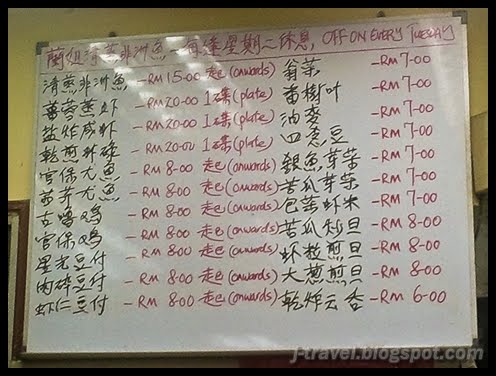 蘭姐清蒸非洲魚 - 每逢星期二休息, OFF ON EVERY TUESDAY
清蒸非洲魚 -RM 15-00 起(onwards) 翁菜 -RM 7-00
蒸虾 -RM 20-00 1碟(plate) 番樹叶 -RM 7-00
盐炸咸虾 -RM 20-00 1碟(plate) 油 -RM 7-00
乾煎虾碌 -RM 20-00 1碟(plate) 四季豆 -RM 7-00
官保尤魚 -RM 8-00 起(onwards) 銀魚芽菜 -RM 7-00
芹尤魚 -RM 8-00 起(onwards) 苦瓜芽菜 -RM 7-00
古嚕鸡 -RM 8-00 起(onwards) 包菜虾米 -RM 7-00
官保鸡 -RM 8-00 起(onwards) 苦瓜炒旦 -RM 8-00
星光豆付 -RM 8-00 起(onwards) 虾粒煎旦 -RM 8-00
肉碎豆付 -RM 8-00 起(onwards) 大葱煎旦 -RM 8-00
虾仁豆付 -RM 8-00 起(onwards) 乾炸云吞 -RM 6-00
j-travel.blogspot.com